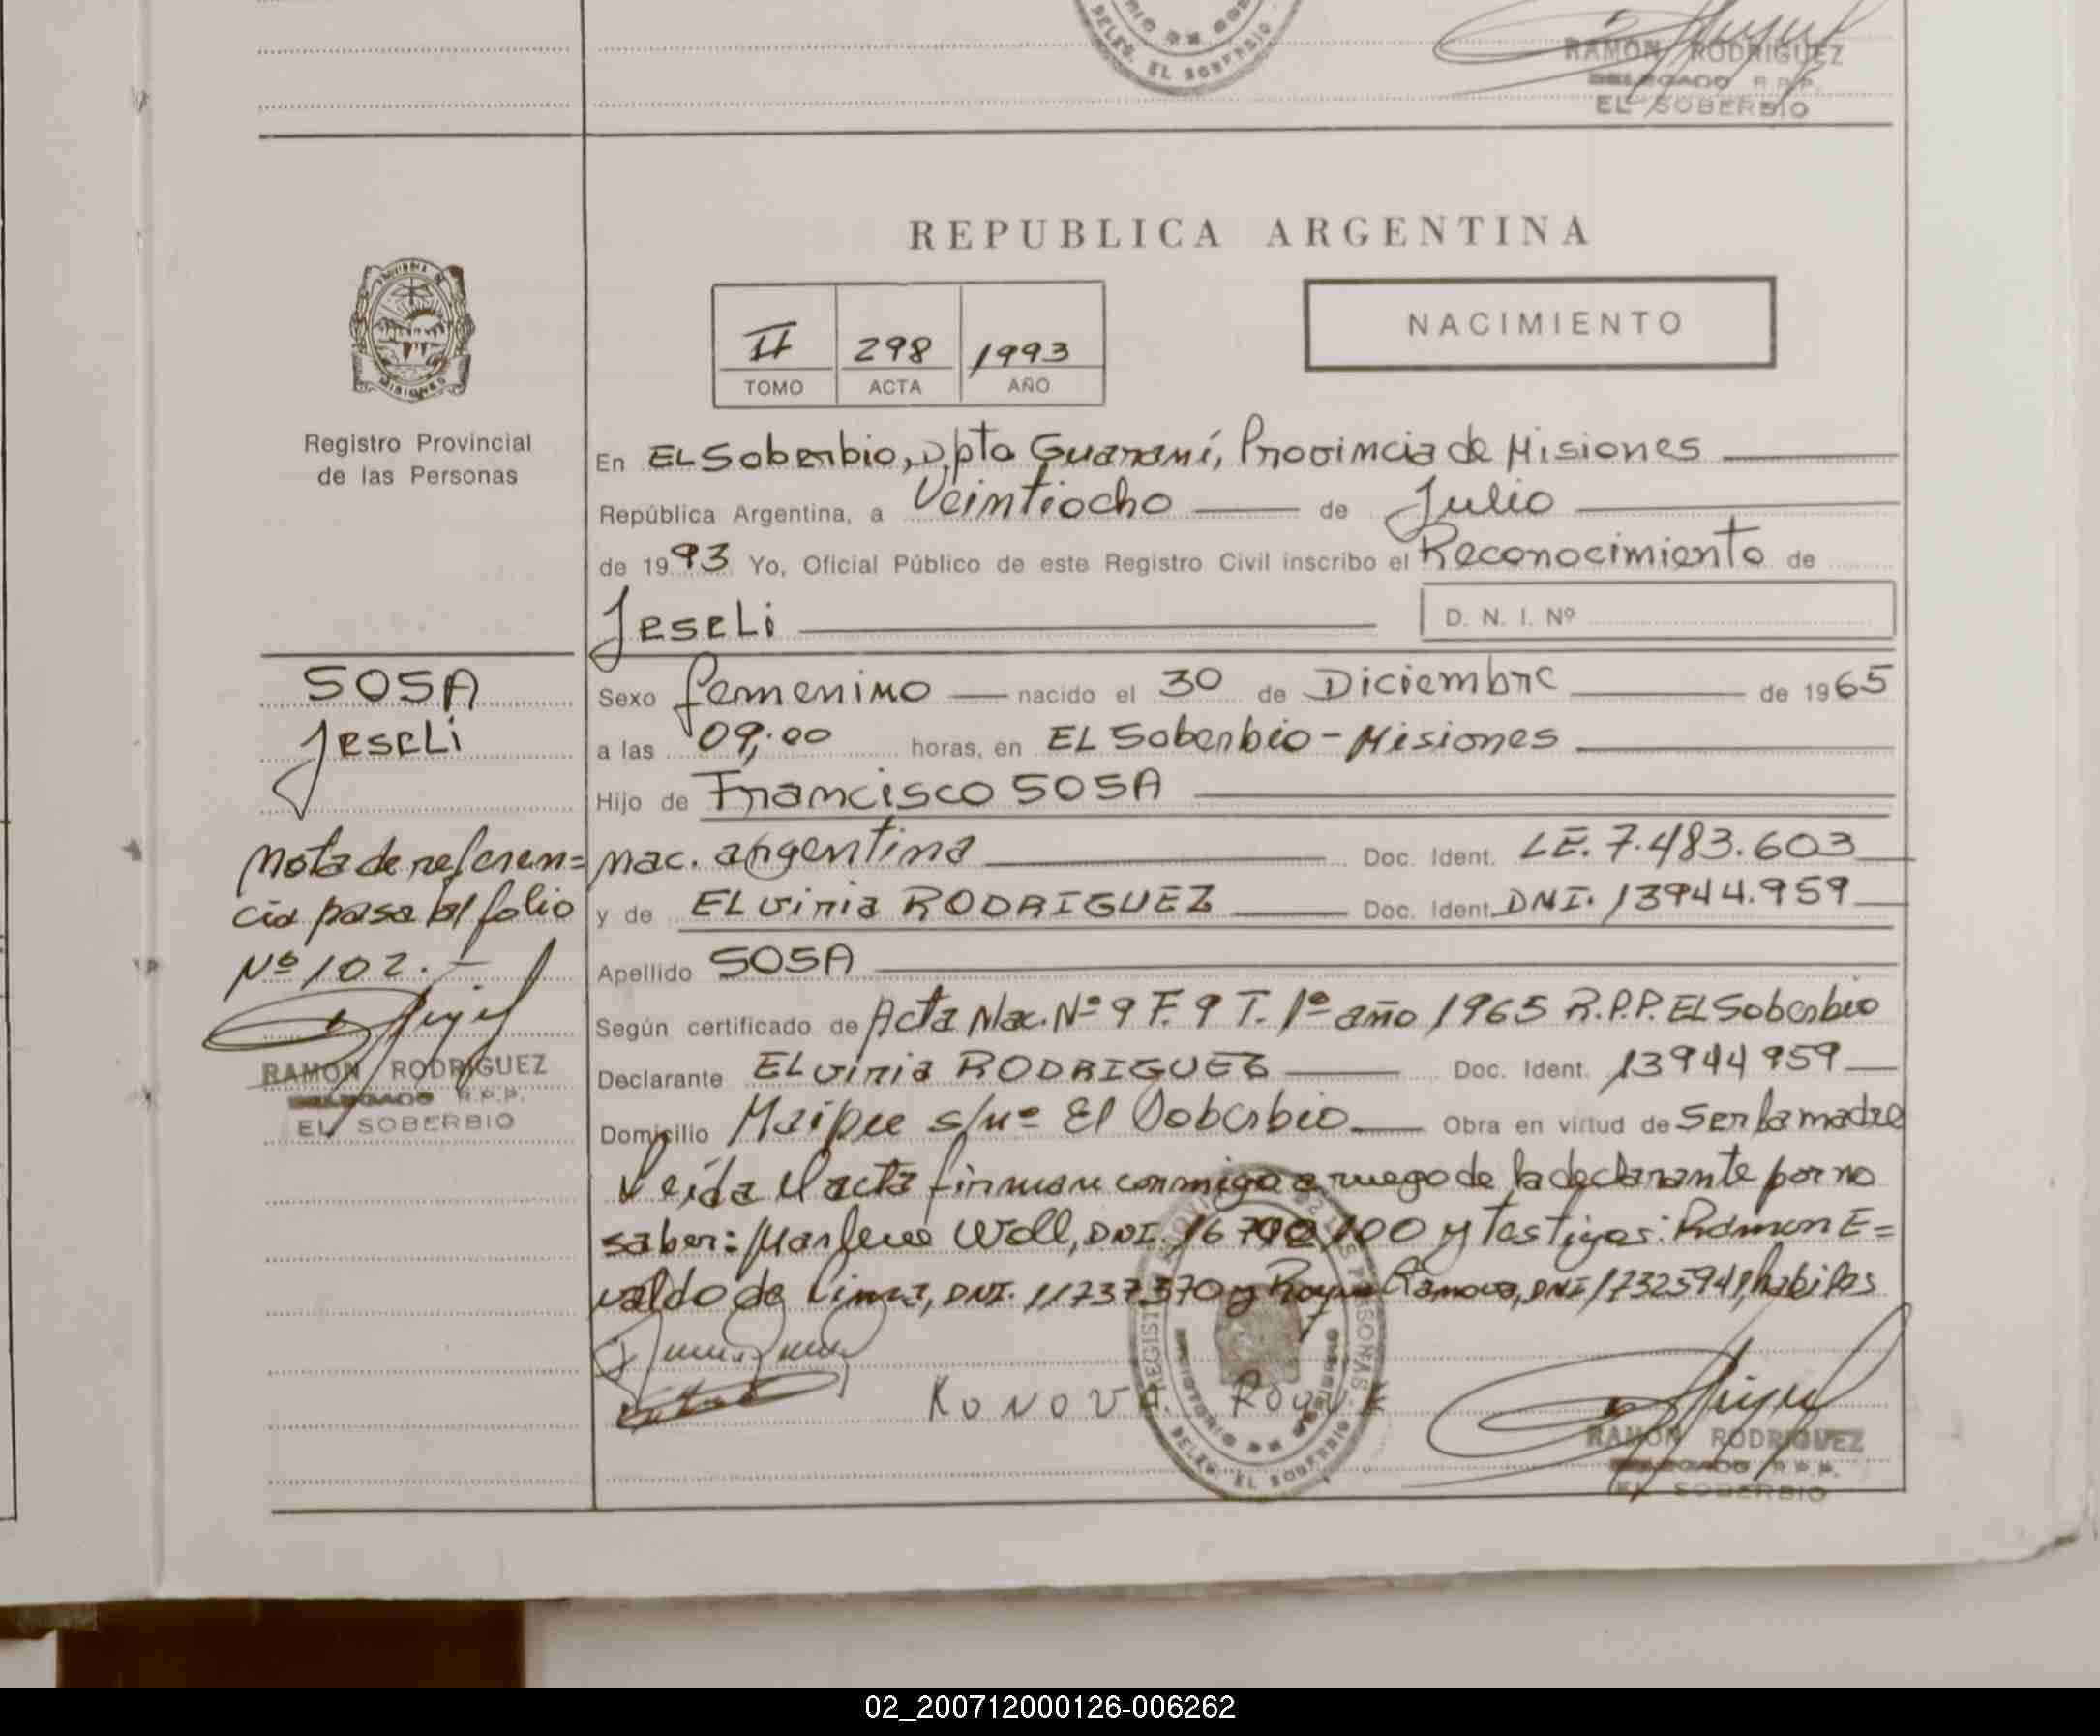 RAMON RODRIGUEZ
DELEGADO R.P.P.
EL SOBERBIO
DELEG. EL SOBERBIO
REPUBLICA ARGENTINA
II 298 1993
TOMO ACTA AÑO
NACIMIENTO
Registro Provincial
de las Personas
En EL Soberbio, Dpto Guaraní, Provincia de Misiones
República Argentina, a Veintiocho de Julio
de 1993 Yo, Oficial Público de este Registro Civil inscribo el Reconocimiento de
Jeseli D. N. I. Nº
SOSA
Jeseli
Sexo femenino nacido el 30 de Diciembre de 1965
a las 09,00 horas, en EL Soberbio - Misiones
Hijo de Francisco SOSA
nac. argentina Doc. Ident. LE. 7.483.603
y de ELviria RODRIGUEZ Doc. Ident. DNI. 13944.959
Apellido SOSA
Según certificado de Acta Nac. Nº 9 F. 9 T. 1º año 1965 R.P.P. EL Soberbio
Declarante ELviria RODRIGUEZ Doc. Ident. 13944959
Domicilio Maipu s/nº El Soberbio Obra en virtud de Ser la madre
Leída el acta firman conmigo a ruego de la declarante por no
saber: Marlene Woll, DNI. 16.700.100 y testigos: Ramon E=
valdo de Lima, DNI. 11737370 y Roque Ranova, DNI 17325941, habiles
KONOVA. ROQUE
Nota de referen=
cia pasa al folio
Nº 102.-
RAMON RODRIGUEZ
DELEGADO R.P.P.
EL SOBERBIO
DELEG. EL SOBERBIO
RAMON RODRIGUEZ
DELEGADO R.P.P.
EL SOBERBIO
02_200712000126-006262